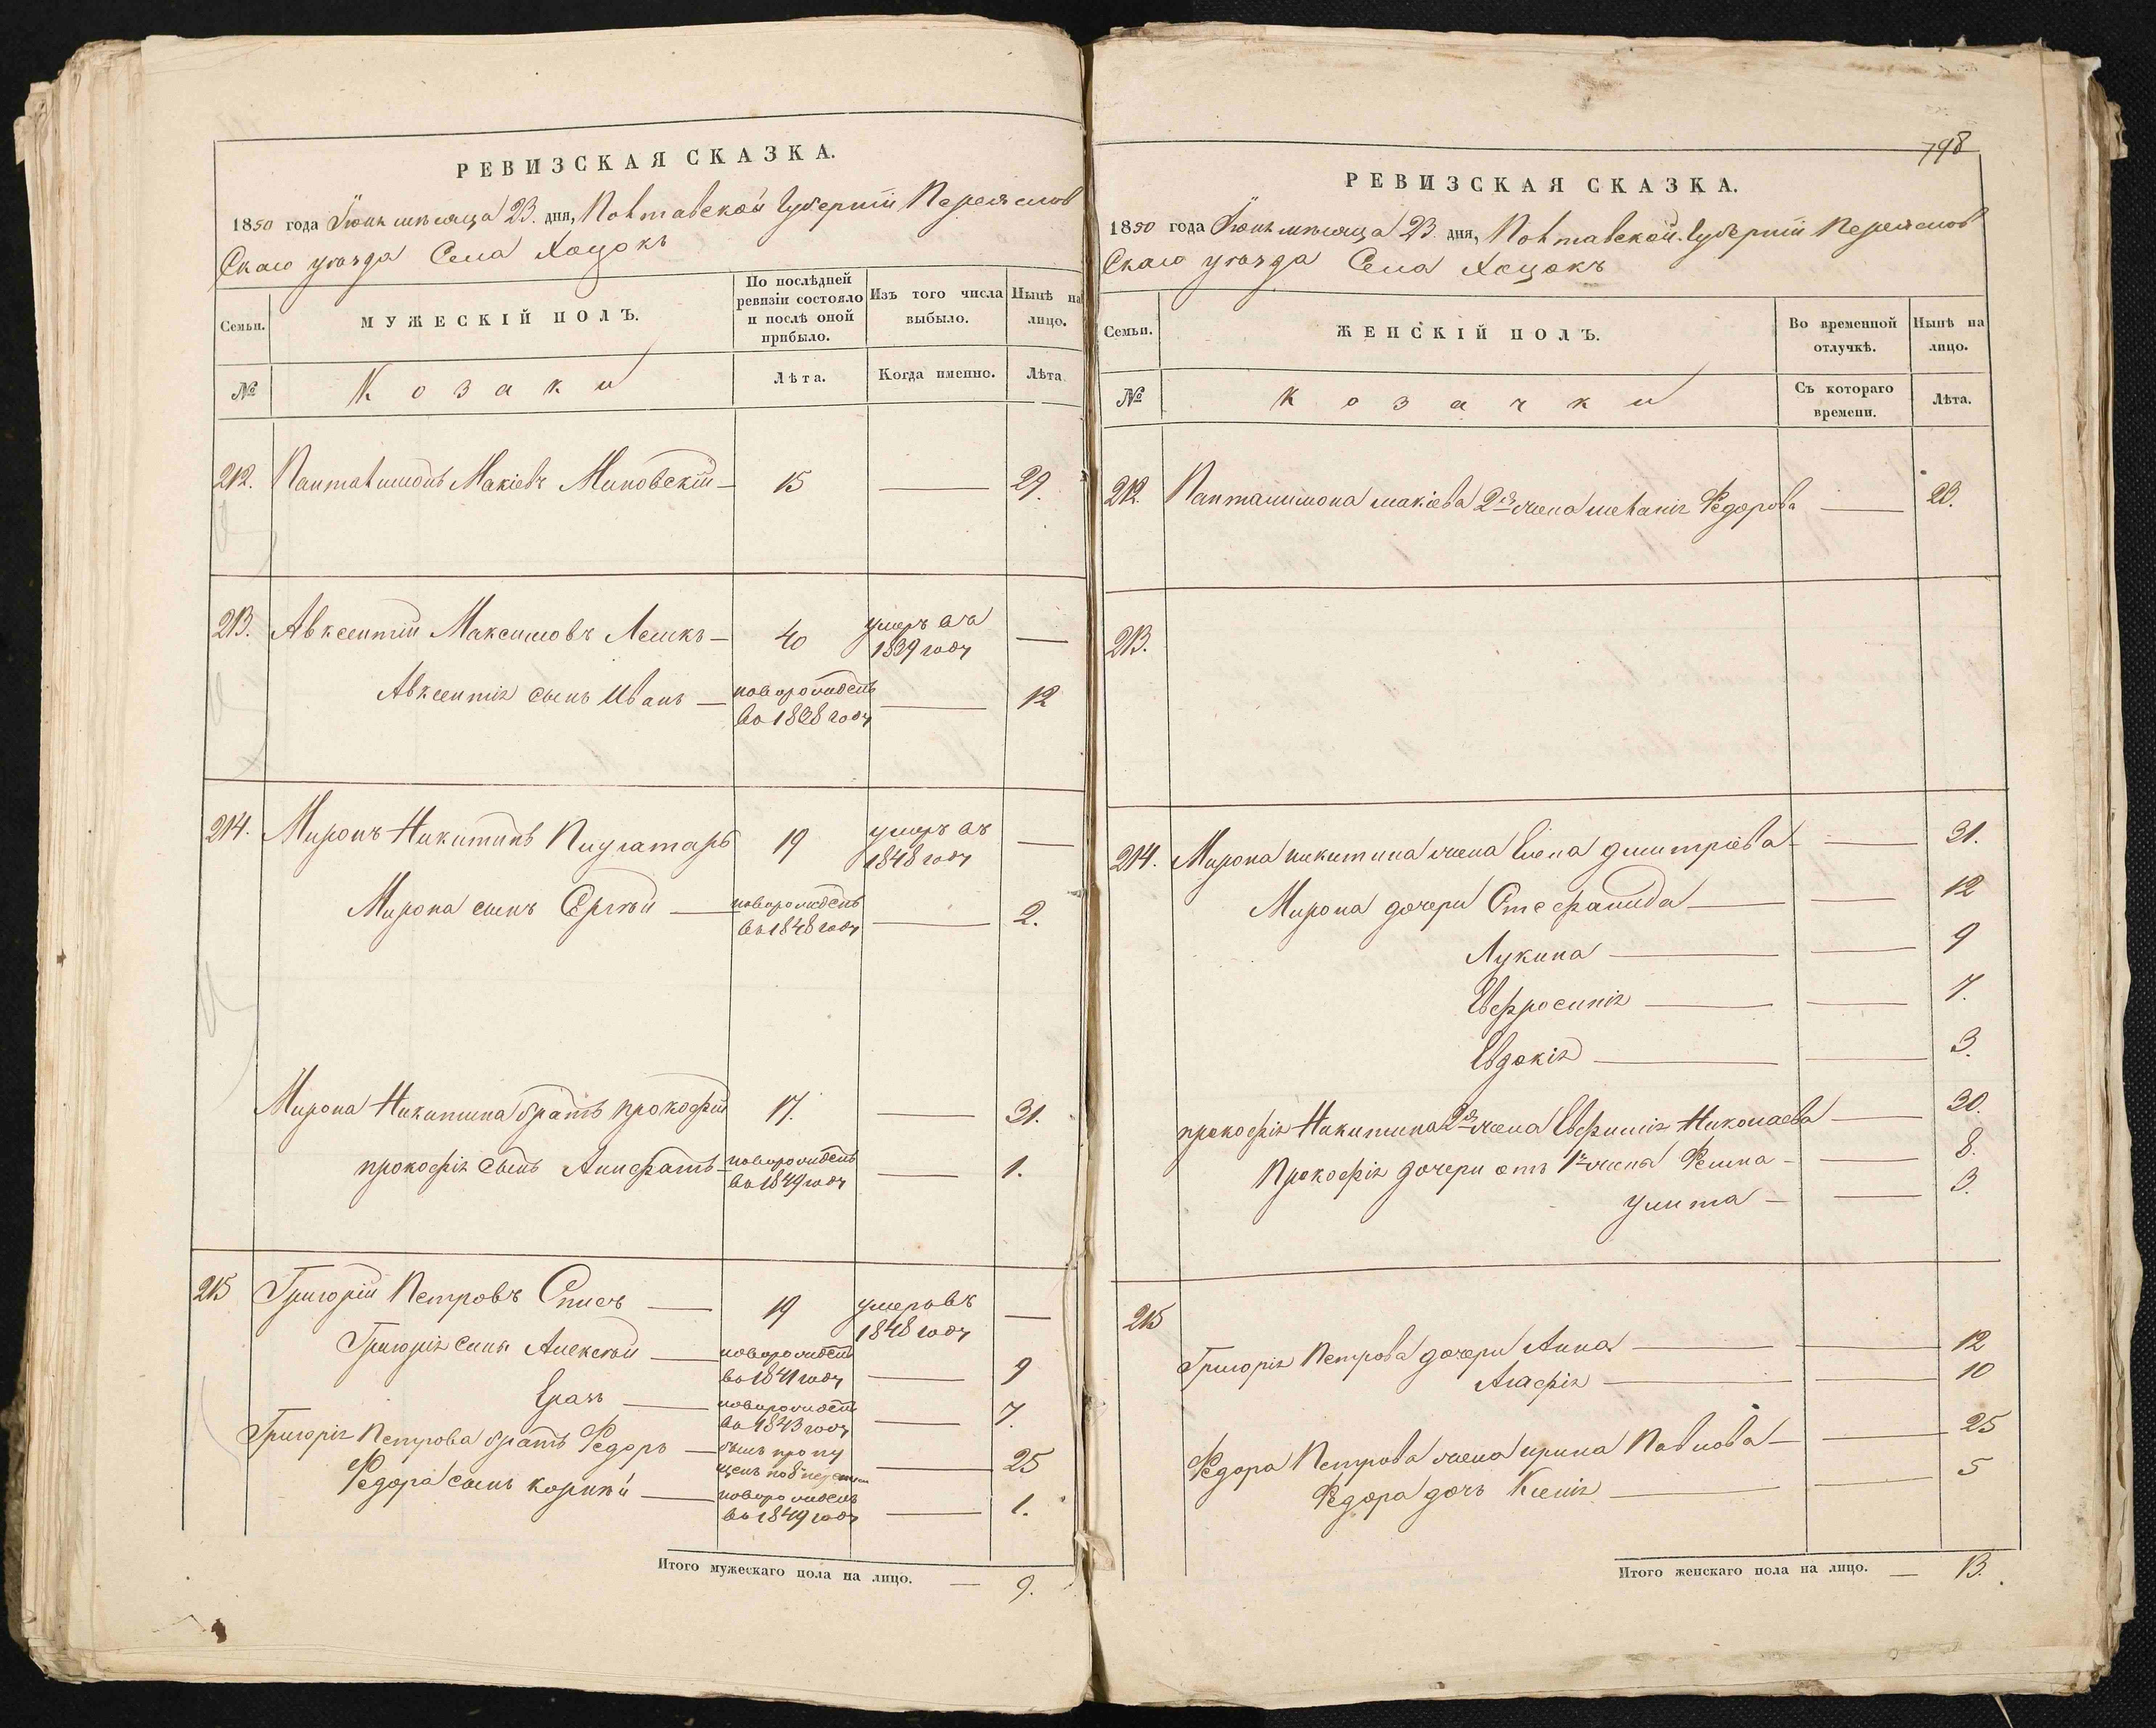 РЕВИЗСКАЯ СКАЗКА.
1850 года Іюнь мѣсяца 23. дня, Полтавской Губерніи Переяслов
Скаго уѣзда Села Хоцокъ
Семьи.
МУЖЕСКІЙ ПОЛЪ.
По послѣдней ревизіи состояло и послѣ оной прибыло.
Изъ того числа выбыло.
Нынѣ на лицо.
№
Козаки
Лѣта.
Когда именно.
Лѣта
212. Панталимонъ Макіевъ 15 — 29.
213. Авксентій Максимовъ 40 умеръ въ 1839 году —
Авксентія сынъ Иванъ — новорожденъ во 1838 году — 12
214. Миронъ Никитинъ 19 умеръ въ 1848 году —
Мирона сынъ Сергѣй — новорожденъ въ 1848 году — 2.
Мирона Никитина братъ прокофій 17. — 31.
прокофія сынъ — новорожденъ во 1849 году — 1.
215 Григорій Петровъ — 19 умеръ въ 1848 году —
Григорія сынъ Алексѣй — новорожденъ во 1841 году — 9
— новорожденъ во 1843 году — 7.
Григорія Петрова братъ Федоръ — былъ пропущенъ — 25
Федора сынъ корнѣй — новорожденъ во 1849 году — 1.
Итого мужескаго пола на лицо. — 9.
798
РЕВИЗСКАЯ СКАЗКА.
1850 года Іюнь мѣсяца 23 дня, Полтавской Губерніи Переяслов
Скаго уѣзда Села Хоцокъ
Семьи.
ЖЕНСКІЙ ПОЛЪ.
Во временной отлучкѣ.
Нынѣ на лицо.
№
Козачки
Съ котораго времени.
Лѣта.
212. Панталимона макіева 2я жена меланія Федорова — 23.
213.
214. Мирона никитина жена Елена дмитріева — 31.
Мирона дочери Стефанида — — 12
Лукина — — 9
Евфросинія — — 7.
Евдокія — — 3.
прокофія Никитина 2я жена Евфимія Николаева — 30.
Прокофія дочери отъ 1й жены Фекла — — 8.
улита — — 3.
215
Григорія Петрова дочери Анна — — 12
Агафія — — 10
Федора Петрова жена ирина Павлова — — 25
Федора дочь Ксенія — — 5
Итого женскаго пола на лицо. — 13.